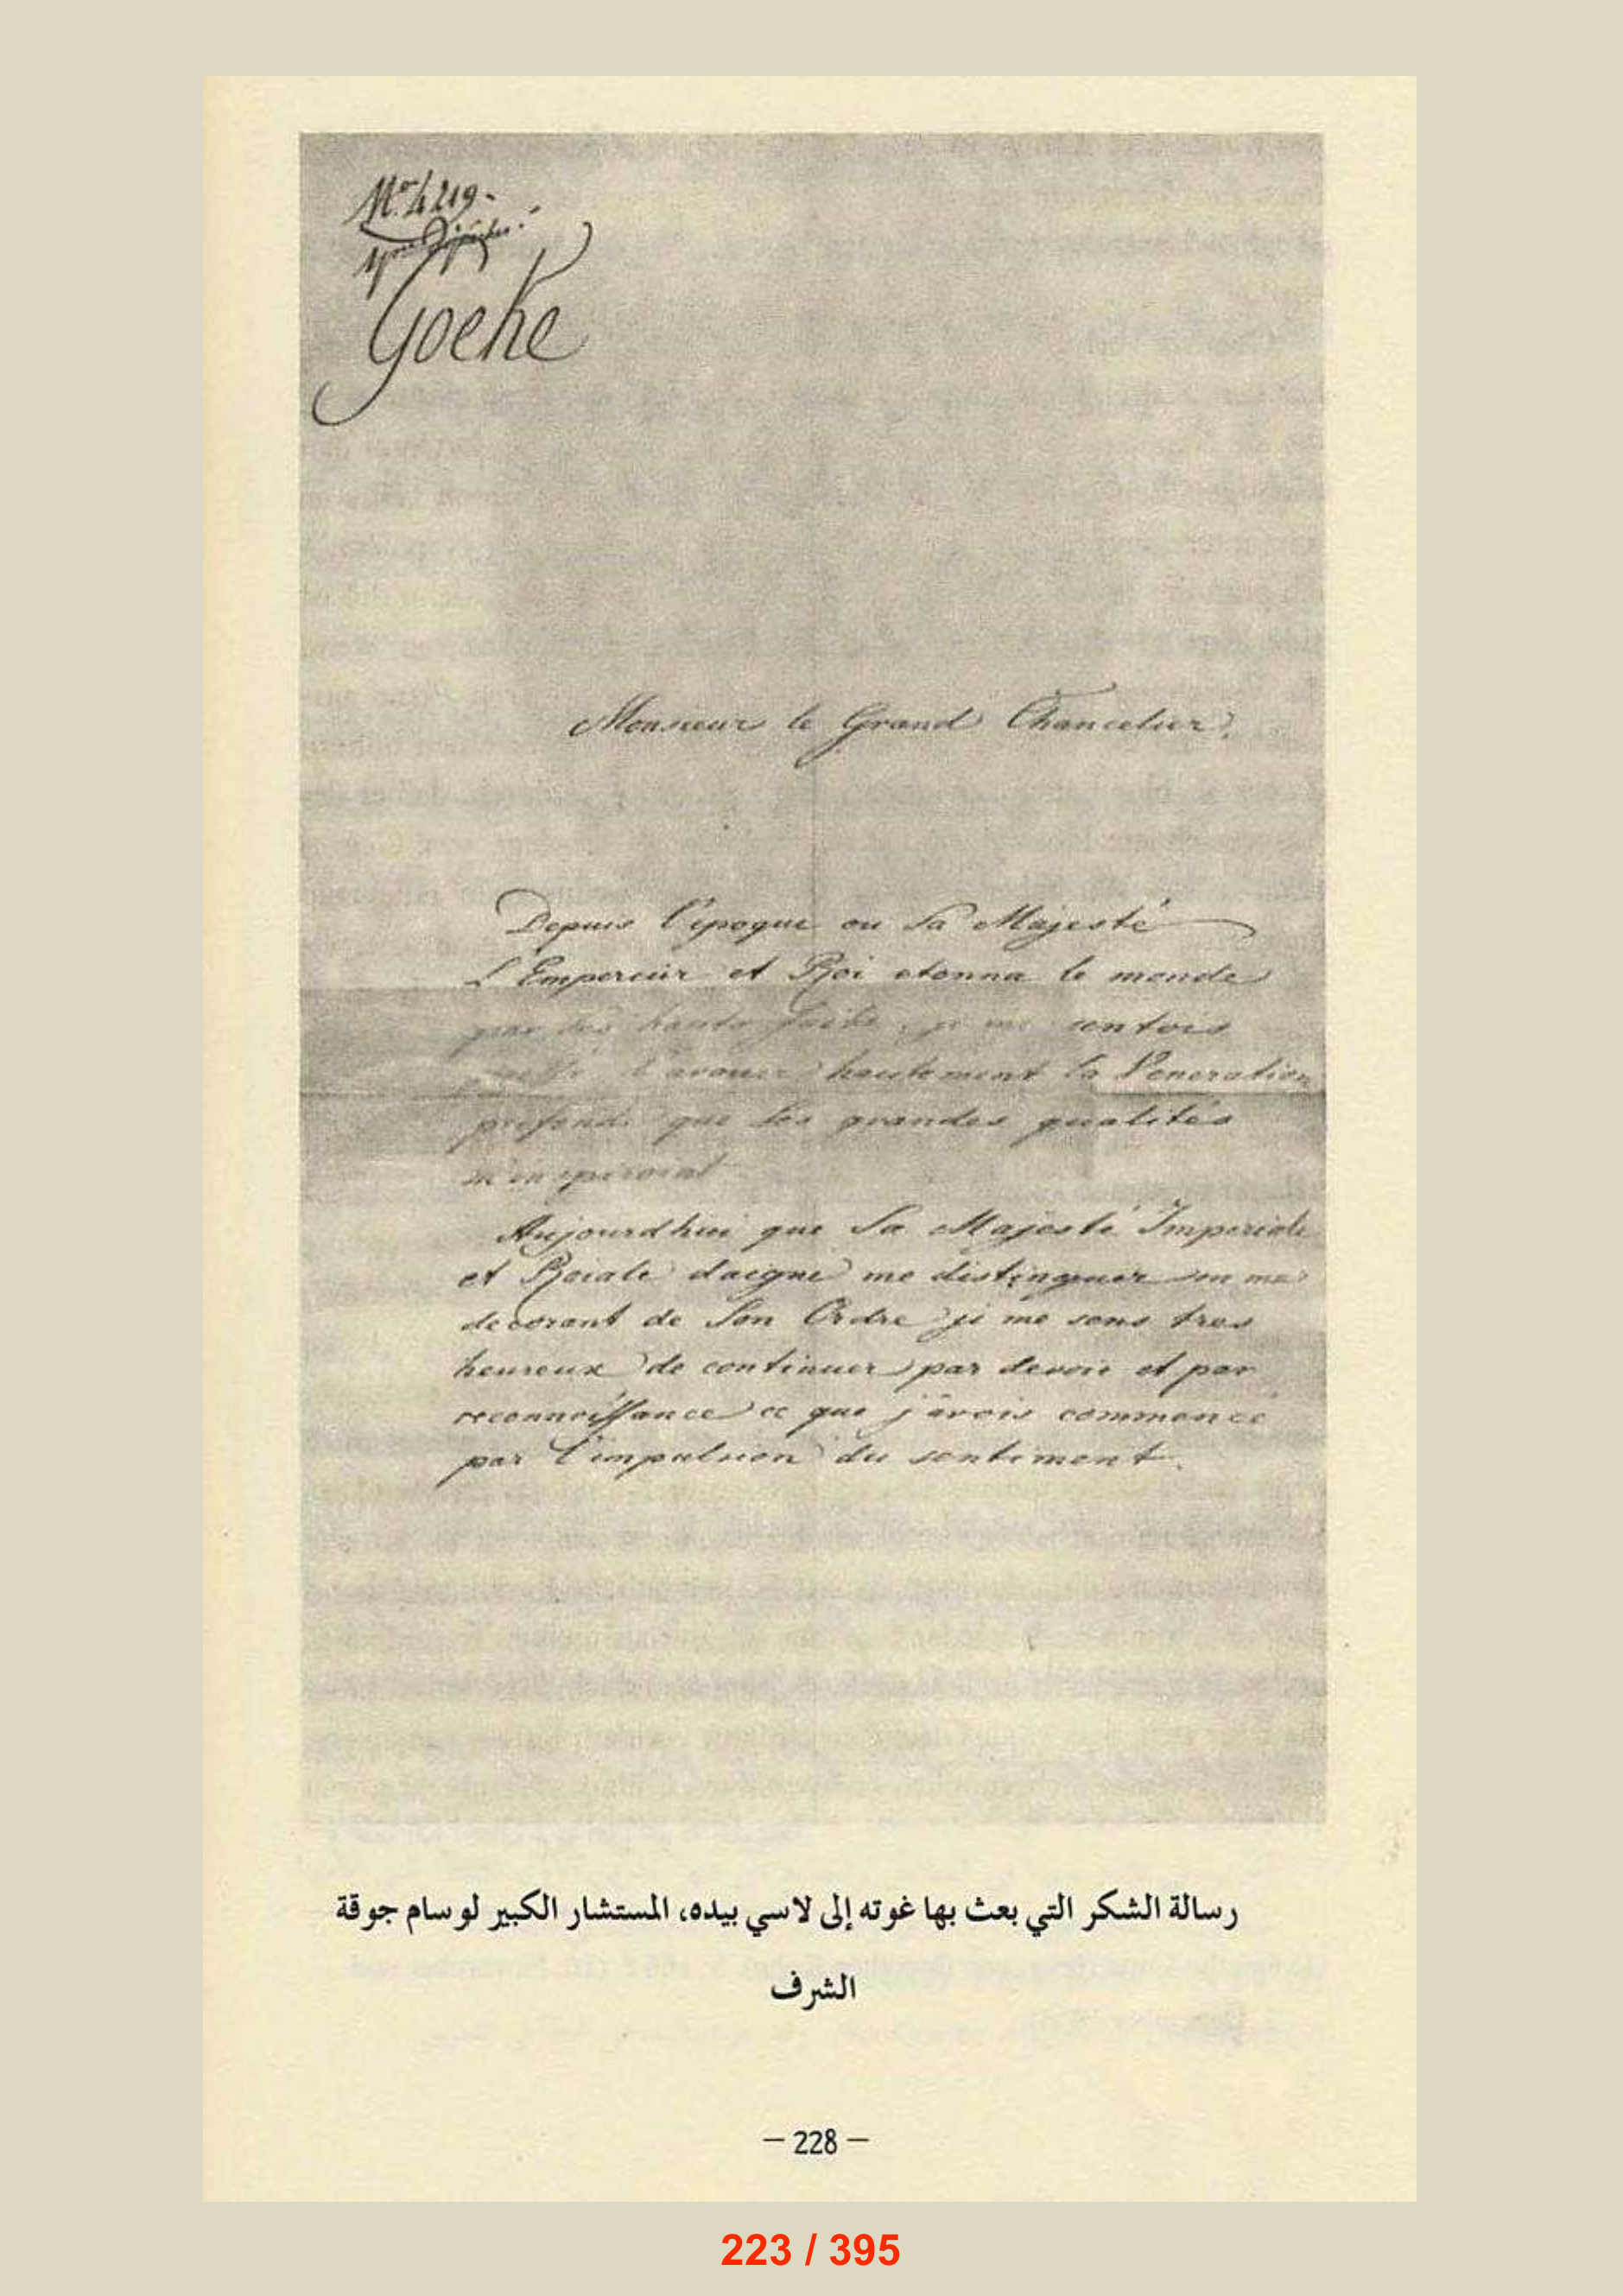 No. 4219-
Goethe
Monsieur le Grand Chancelier.
Depuis l'epoque ou Sa Majesté
L'Empereur et Roi etonna le monde
par ses hauts faits, je me sentois
l'avouer hautement la Veneration
profonde que Ses grandes qualités
m'inspiroient
Aujourdhui que Sa Majesté Imperiale
et Roiale daigne me distinguer en me
decorant de Son Ordre je me sens tres
heureux de continuer par devoir et par
reconnoissance ce que j'avois commencé
par l'impulsion du sentiment.
رسالة الشكر التي بعث بها غوته إلى لاسي بيده، المستشار الكبير لوسام جوقة
الشرف
– 228 –
223 / 395